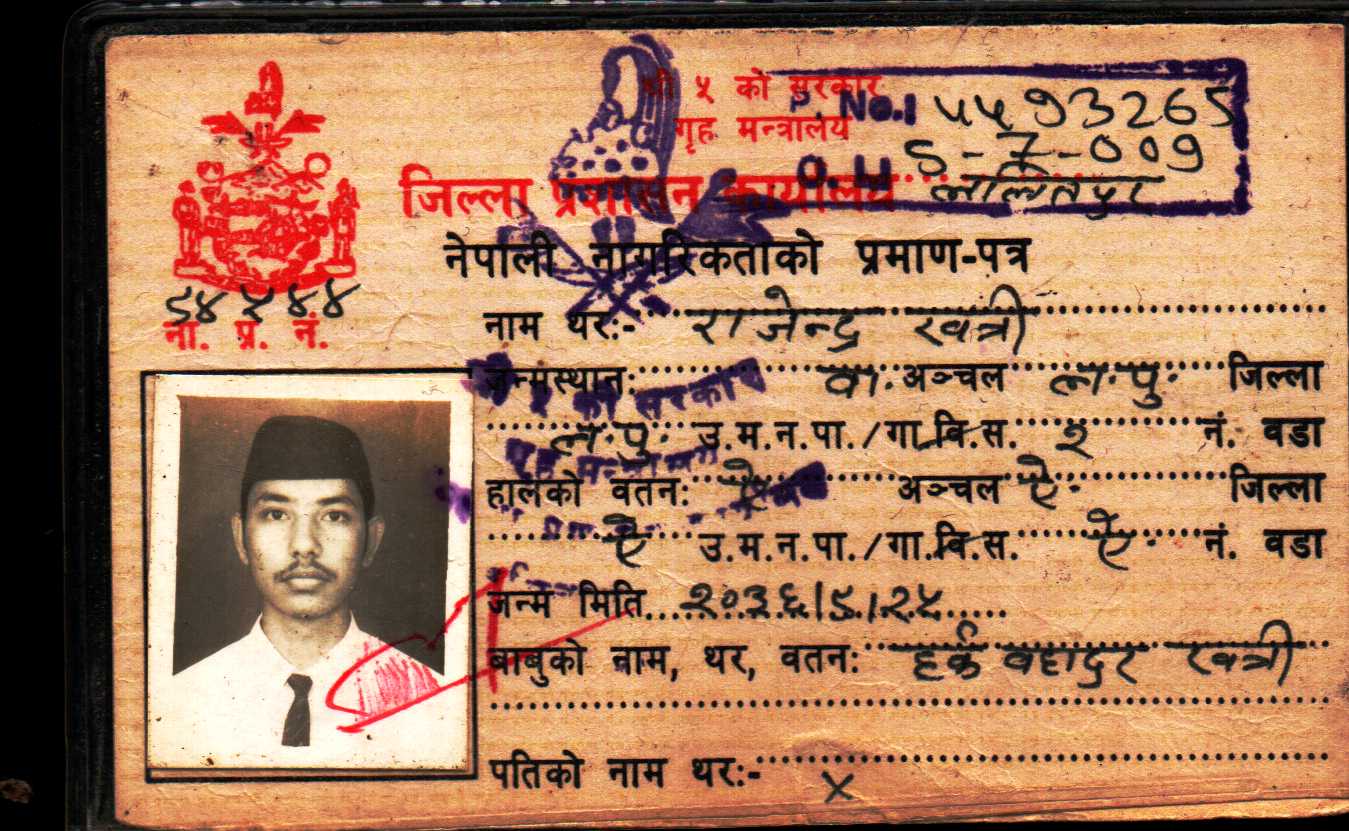 श्री ५ को सरकार
गृह मन्त्रालय
P. No. ५५93265
5-7-009
ललितपुर
जिल्ला प्रशासन कार्यालय
नेपाली नागरिकताको प्रमाण-पत्र
ना. प्र. नं.
नाम थर:- राजेन्द्र खत्री
जन्मस्थान: वा. अञ्चल ल.पु. जिल्ला
ल.पु. उ.म.न.पा./गा.बि.स. २ नं. वडा
हालको वतन: ऐ. अञ्चल ऐ. जिल्ला
ऐ उ.म.न.पा./गा.बि.स. ऐ. नं. वडा
जन्म मिति २०३६।५।२५
बाबुको नाम, थर, वतन: हर्क बहादुर खत्री
पतिको नाम थर:- X